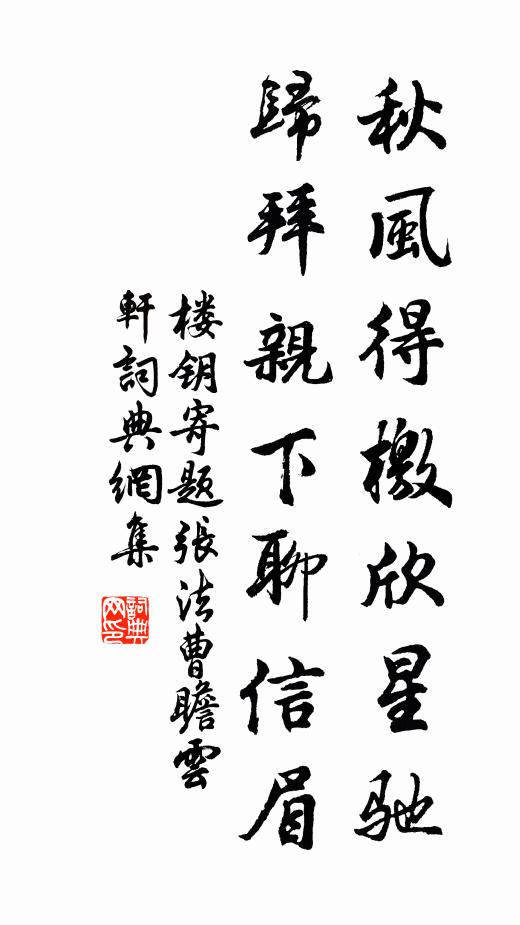 秋風得檄欣星驰
歸拜親下聊信眉
楼钥寄题張法曹瞻雲
軒詞典網集
詞典
网印